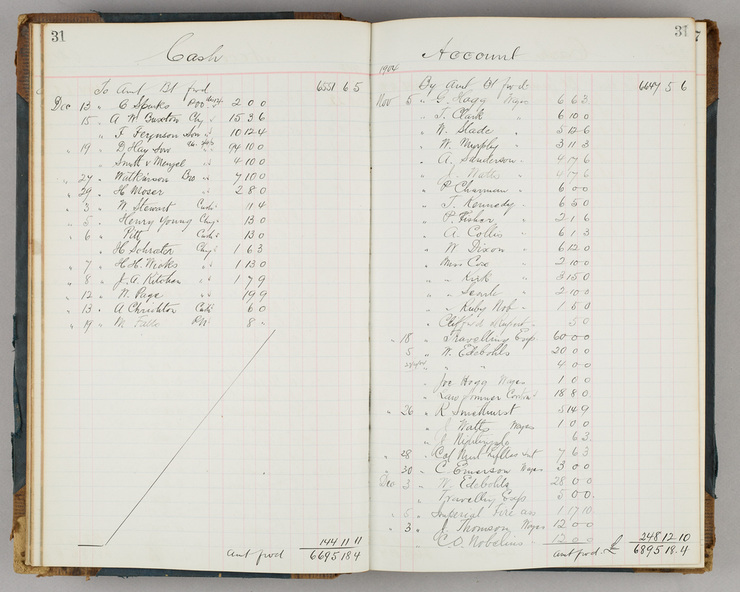 31
Cash
To Amt Bt fwd 6551 6 5
Dec 13 " C Sparks 2 0 0
15 " A W Buxton Chq " 15 3 6
" F Ferguson Son " 10 12 4
" 19 " D Hay Son 94 10 0
" Smith & Menzel " 4 10 0
" 27 " Watkinson Bro " 7 10 0
" 24 " H Moser " 2 8 0
" 3 " W Stewart Cash 11 4
" 5 " Henry Young Chq 13 0
" 6 " Pitt Cash 13 0
" H Schroter Chq 1 6 3
" 7 " H. H. Weeks " 1 13 0
" 8 " J. A. Kitchen " 1 7 9
" 12 " W. Page 19 9
" 13 " A Chrichton Cash 6 0
" 14 " W. Falls PN 8 "
144 11 11
Amt fwd 6695 18 4
31
Account
1904
By Amt Bt fwd: 6647 5 6
Nov 5 " G. Hogg Wages 6 6 3
" T. Clark " 6 10 0
" W. Slade " 5 12 6
" W. Murphy " 3 11 3
" A. Sanderson " 4 17 6
" J. Watts " 4 17 6
" P. Charman " 6 0 0
" T. Kennedy " 6 5 0
" P. Fisher " 2 1 6
" A. Collis " 6 1 3
" W Dixon " 6 12 0
" Miss Cox " 2 10 0
" " Kirk " 3 15 0
" " Searle " 2 10 3
" " Ruby Nob " 1 5 0
" Clifford 5 0
" 18 " Travelling Exp 60 0 0
5 " W. Edebohls 20 0 0
" " 4 0 0
" Joe Hogg Wages 1 0 0
" 18 8 0
" 26 " R Smethurst 5 14 9
" J Watts Wages 1 0 0
" J Nightingale 6 3
" 28 " Col Mut Life Ass Int 7 6 3
" 30 " C Emerson Wages 3 0 0
Dec 3 " W. Edebohls 28 0 0
" Travelling Exp 5 0 0
" 5 " Imperial Fire Ass 1 17 10
" 3 " J Thomson Wages 12 0 0
" C. O. Nobelius " 12 0 0
£ 248 12 10
Amt fwd: 6895 18 4